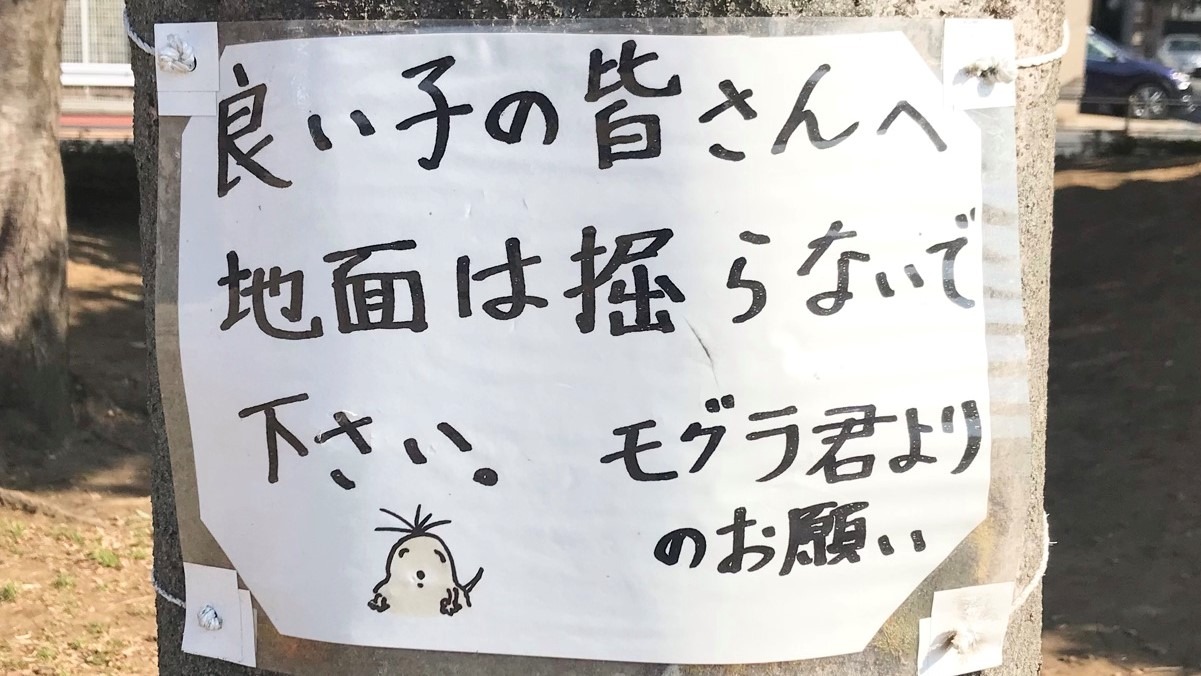 良い子の皆さんへ
地面は掘らないで
下さい。 モグラ君より
のお願い